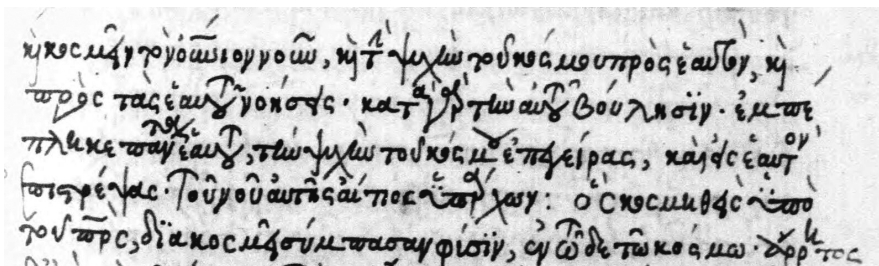 καὶ κοσμεῖν τὸν οὐνιον νοῦν, καὶ τὴν ψυχὴν τοῦ κόσμου πρὸς ἑαυτὸν, καὶ
πρὸς τὰς ἑαυτοῦ νοήσεις· κατὰ γὰρ τὴν αὐτοῦ βούλησϊν· ἐμπέ
πληκε πάντα ἑαυτοῦ, τὴν ψυχὴν τοῦ κόσμου ἐπεγείρας, καὶ εἰς ἑαυτὸν
ἐπιστρέψας· τοῦ νοῦ αὐτῆς αἴτιος ὑπάρχων: ὃς κοσμηθεὶς ὑπὸ
τοῦ πρς, δϊακοσμεῖ σύμπασαν φύσϊν, ἐν τῶδε τῶ κόσμω· ἄρρητος